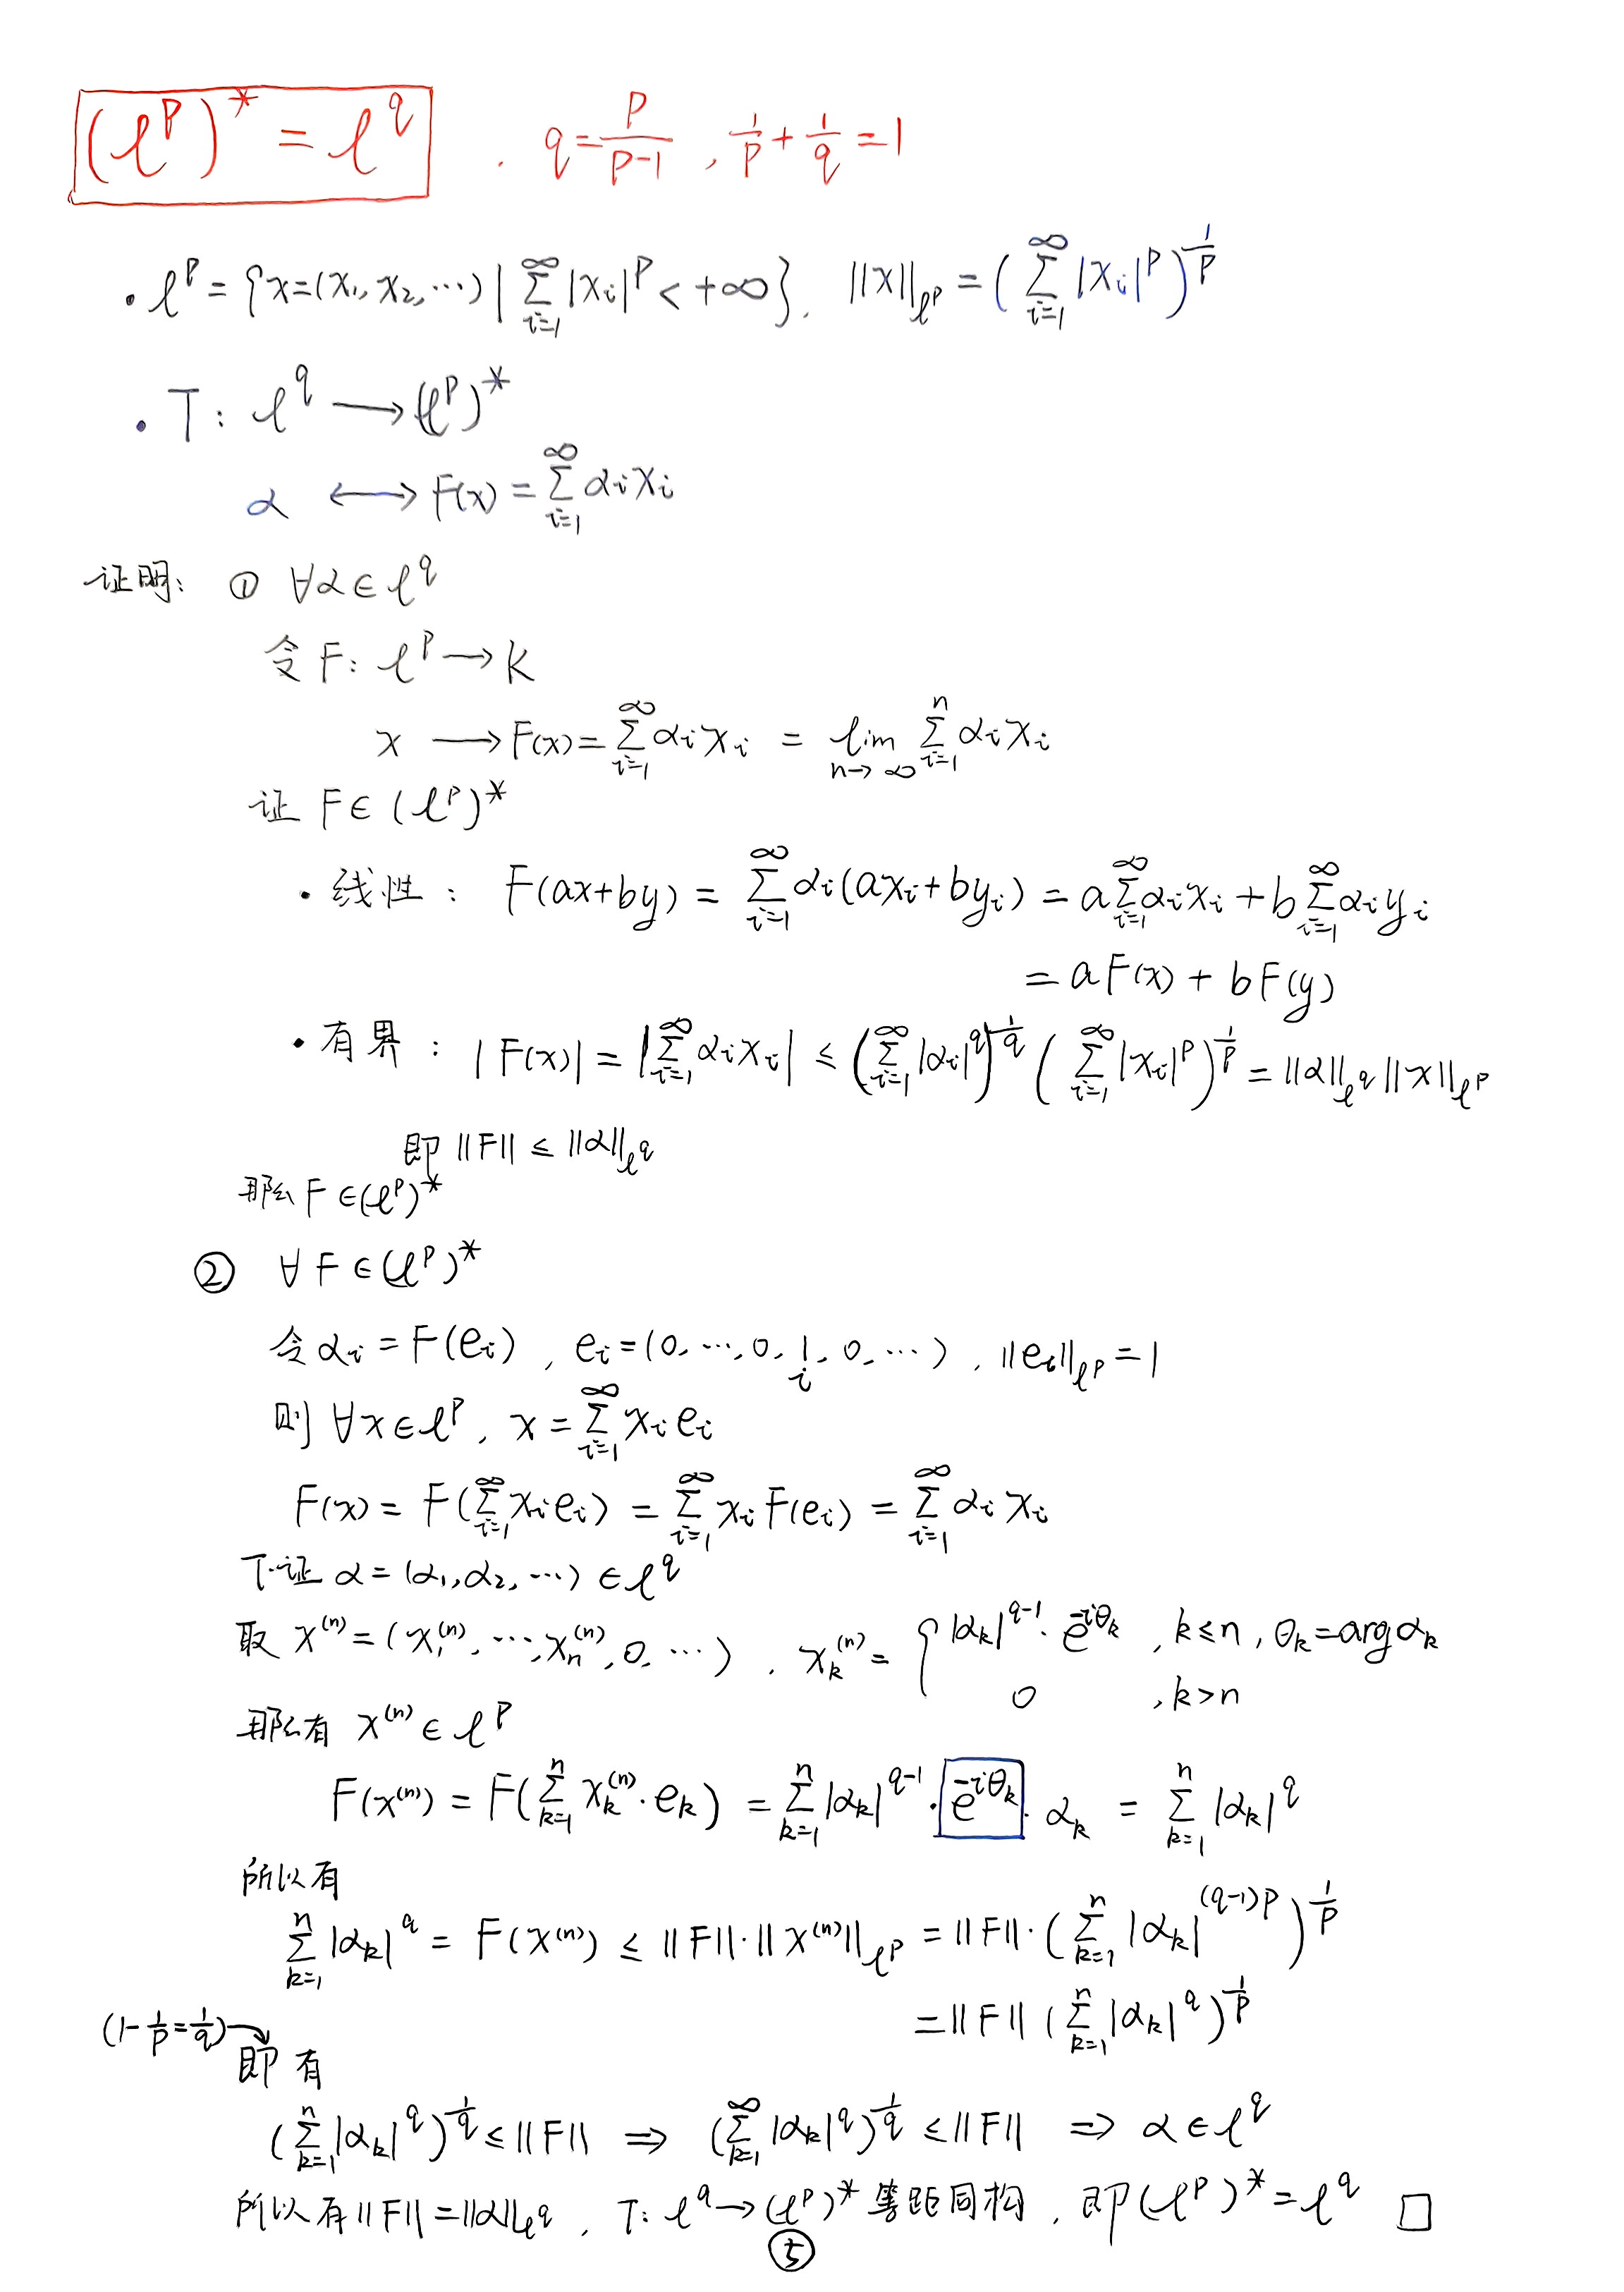 (ℓ^p)^* = ℓ^q . q = p/(p-1) , 1/p + 1/q = 1
· ℓ^p = {x=(x₁, x₂, ···) | ∑_{i=1}^∞ |x_i|^p < +∞}, ||x||_{ℓ^p} = (∑_{i=1}^∞ |x_i|^p)^{1/p}
· T: ℓ^q ⟶ (ℓ^p)^*
α ⟷ F(x) = ∑_{i=1}^∞ α_i x_i
证明: ① ∀α ∈ ℓ^q
令 F: ℓ^p → k
x ⟶ F(x) = ∑_{i=1}^∞ α_i x_i = lim_{n→∞} ∑_{i=1}^n α_i x_i
证 F ∈ (ℓ^p)^*
· 线性 : F(ax+by) = ∑_{i=1}^∞ α_i(ax_i+by_i) = a∑_{i=1}^∞ α_i x_i + b∑_{i=1}^∞ α_i y_i
= aF(x) + bF(y)
· 有界 : |F(x)| = |∑_{i=1}^∞ α_i x_i| ≤ (∑_{i=1}^∞ |α_i|^q)^{1/q} (∑_{i=1}^∞ |x_i|^p)^{1/p} = ||α||_{ℓ^q} ||x||_{ℓ^p}
即 ||F|| ≤ ||α||_{ℓ^q}
那么 F ∈ (ℓ^p)^*
② ∀ F ∈ (ℓ^p)^*
令 α_i = F(e_i) , e_i = (0, ···, 0, 1_i, 0, ···) , ||e_i||_{ℓ^p} = 1
则 ∀x ∈ ℓ^p, x = ∑_{i=1}^∞ x_i e_i
F(x) = F(∑_{i=1}^∞ x_i e_i) = ∑_{i=1}^∞ x_i F(e_i) = ∑_{i=1}^∞ α_i x_i
下证 α = (α₁, α₂, ···) ∈ ℓ^q
取 x^{(n)} = (x₁^{(n)}, ···, x_n^{(n)}, 0, ···) , x_k^{(n)} = { |α_k|^{q-1} · e^{-iθ_k} , k ≤ n , θ_k = arg α_k
0 , k > n
那么有 x^{(n)} ∈ ℓ^p
F(x^{(n)}) = F(∑_{k=1}^n x_k^{(n)} · e_k) = ∑_{k=1}^n |α_k|^{q-1} · e^{-iθ_k} · α_k = ∑_{k=1}^n |α_k|^q
所以有
∑_{k=1}^n |α_k|^q = F(x^{(n)}) ≤ ||F|| · ||x^{(n)}||_{ℓ^p} = ||F|| · (∑_{k=1}^n |α_k|^{(q-1)p})^{1/p}
= ||F|| (∑_{k=1}^n |α_k|^q)^{1/p}
(1 - 1/p = 1/q) → 即有
(∑_{k=1}^n |α_k|^q)^{1/q} ≤ ||F|| ⇒ (∑_{k=1}^∞ |α_k|^q)^{1/q} ≤ ||F|| ⇒ α ∈ ℓ^q
所以有 ||F|| = ||α||_{ℓ^q} , T: ℓ^q → (ℓ^p)^* 等距同构 , 即 (ℓ^p)^* = ℓ^q □
⑤